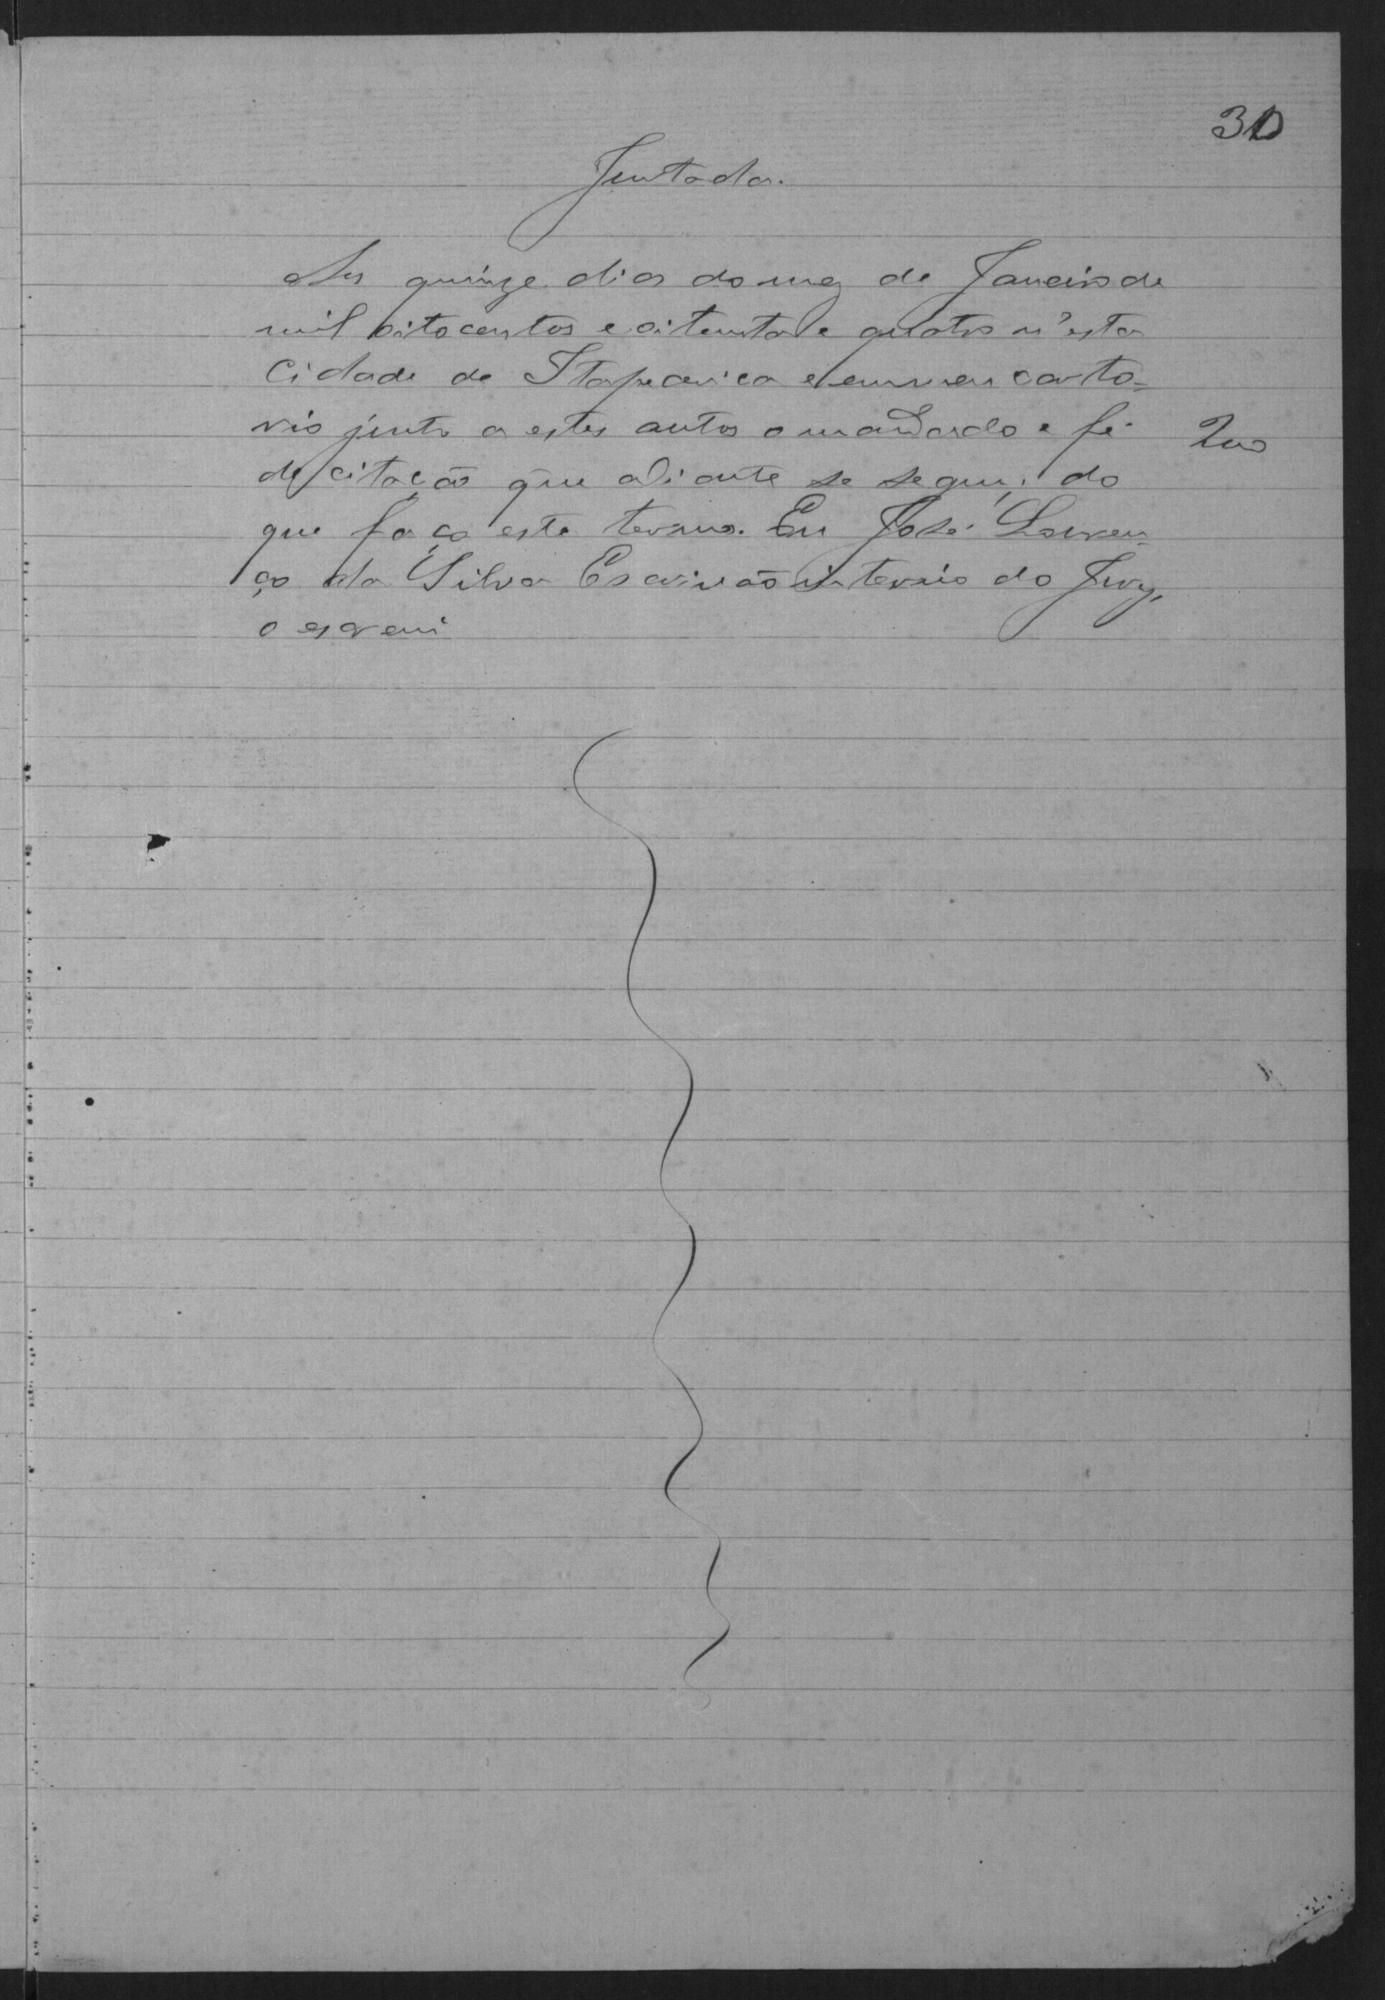 30
Juntada.
Aos quinze dias do mez de Janeiro de
mil oitocentos e oitenta e quatro n'esta
Cidade de Itapecerica e em meu carto=
rio junto a estes autos o mandado e fé 200
de citação que adiante se segue; do
que faço este termo. Eu José Louren=
ço da Silva Escrivão interino do Jury,
o escrevi